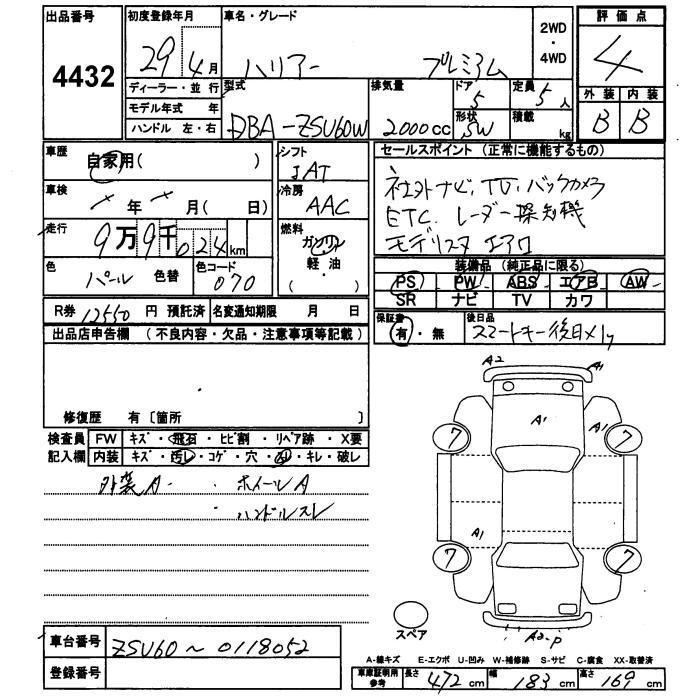 出品番号 初度登録年月 車名・グレード 2WD・4WD 評価点
4432 29 4月 ハリアー プレミアム 4
ディーラー・並行 型式 排気量 ドア 5 定員 5人 外装 内装
モデル年式 年 DBA-ZSU60W 2000cc 形状 SW 積載 kg B B
ハンドル 左・右
車歴 自家用( ) シフト セールスポイント (正常に機能するもの)
車検 年 月( 日) IAT
冷房 AAC
社外ナビ、TV、バックカメラ
ETC、レーダー探知機
モデリスタ エアロ
走行 9万9千024km 燃料 ガソリン 軽・油
色 パール 色替 色コード 070
装備品 (純正品に限る)
PS PW ABS エアB AW
SR ナビ TV カワ
R券 12550円 預託済 名変通知期限 月 日
保証書 有・無 後日品 スマートキー後日
出品店申告欄 (不良内容・欠品・注意事項等記載)
修復歴 有〔箇所 〕
検査員記入欄 FW キズ・飛石・ヒビ割・リペア跡・X要
内装 キズ・汚レ・コゲ・穴・・キレ・破レ
外装A ・ホイールA
・ハンドルスレ
A2 A1
A1 A1
7 7
A1
7 7
A2-P
スペア
車台番号 ZSU60~0118052
登録番号
A-線キズ E-エクボ U-凹み W-補修跡 S-サビ C-腐食 XX-取替済
車庫証明用参考 長さ 472cm 幅 183cm 高さ 169cm